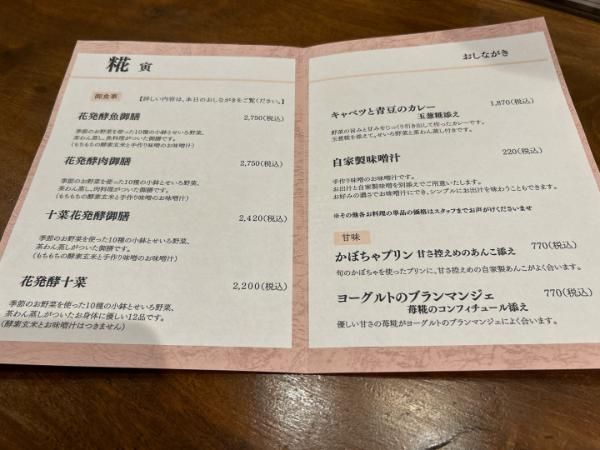 糀 寅
御食事 【詳しい内容は、本日のおしながきをご覧ください。】
花発酵魚御膳 2,750(税込)
季節のお野菜を使った10種の小鉢とせいろ野菜、
茶わん蒸し、魚料理がついた御膳です。
(もちもちの酵素玄米と手作り味噌のお味噌汁)
花発酵肉御膳 2,750(税込)
季節のお野菜を使った10種の小鉢とせいろ野菜、
茶わん蒸し、肉料理がついた御膳です。
(もちもちの酵素玄米と手作り味噌のお味噌汁)
十菜花発酵御膳 2,420(税込)
季節のお野菜を使った10種の小鉢とせいろ野菜、
茶わん蒸しがついた御膳です。
(もちもちの酵素玄米と手作り味噌のお味噌汁)
花発酵十菜 2,200(税込)
季節のお野菜を使った10種の小鉢とせいろ野菜、
茶わん蒸しがついたお身体に優しい12品です。
(酵素玄米とお味噌汁はつきません)
おしながき
キャベツと青豆のカレー 1,870(税込)
玉葱糀添え
野菜の旨みと甘みをじっくり引き出して作ったカレーです。
玉葱糀を添えて。せいろ野菜と茶わん蒸し付きです。
自家製味噌汁 220(税込)
手作り味噌のお味噌汁です。
お出汁と自家製味噌を別添えでご用意いたします。
お好みの濃さでお味噌汁にでき、シンプルにお出汁を味わうこともできます。
※その他各お料理の単品の価格はスタッフまでお声がけくださいませ
甘味
かぼちゃプリン 甘さ控えめのあんこ添え 770(税込)
旬のかぼちゃを使ったプリンに、甘さ控えめの自家製あんこがよく合います。
ヨーグルトのブランマンジェ 770(税込)
苺糀のコンフィチュール添え
優しい甘さの苺糀がヨーグルトのブランマンジェによく合います。